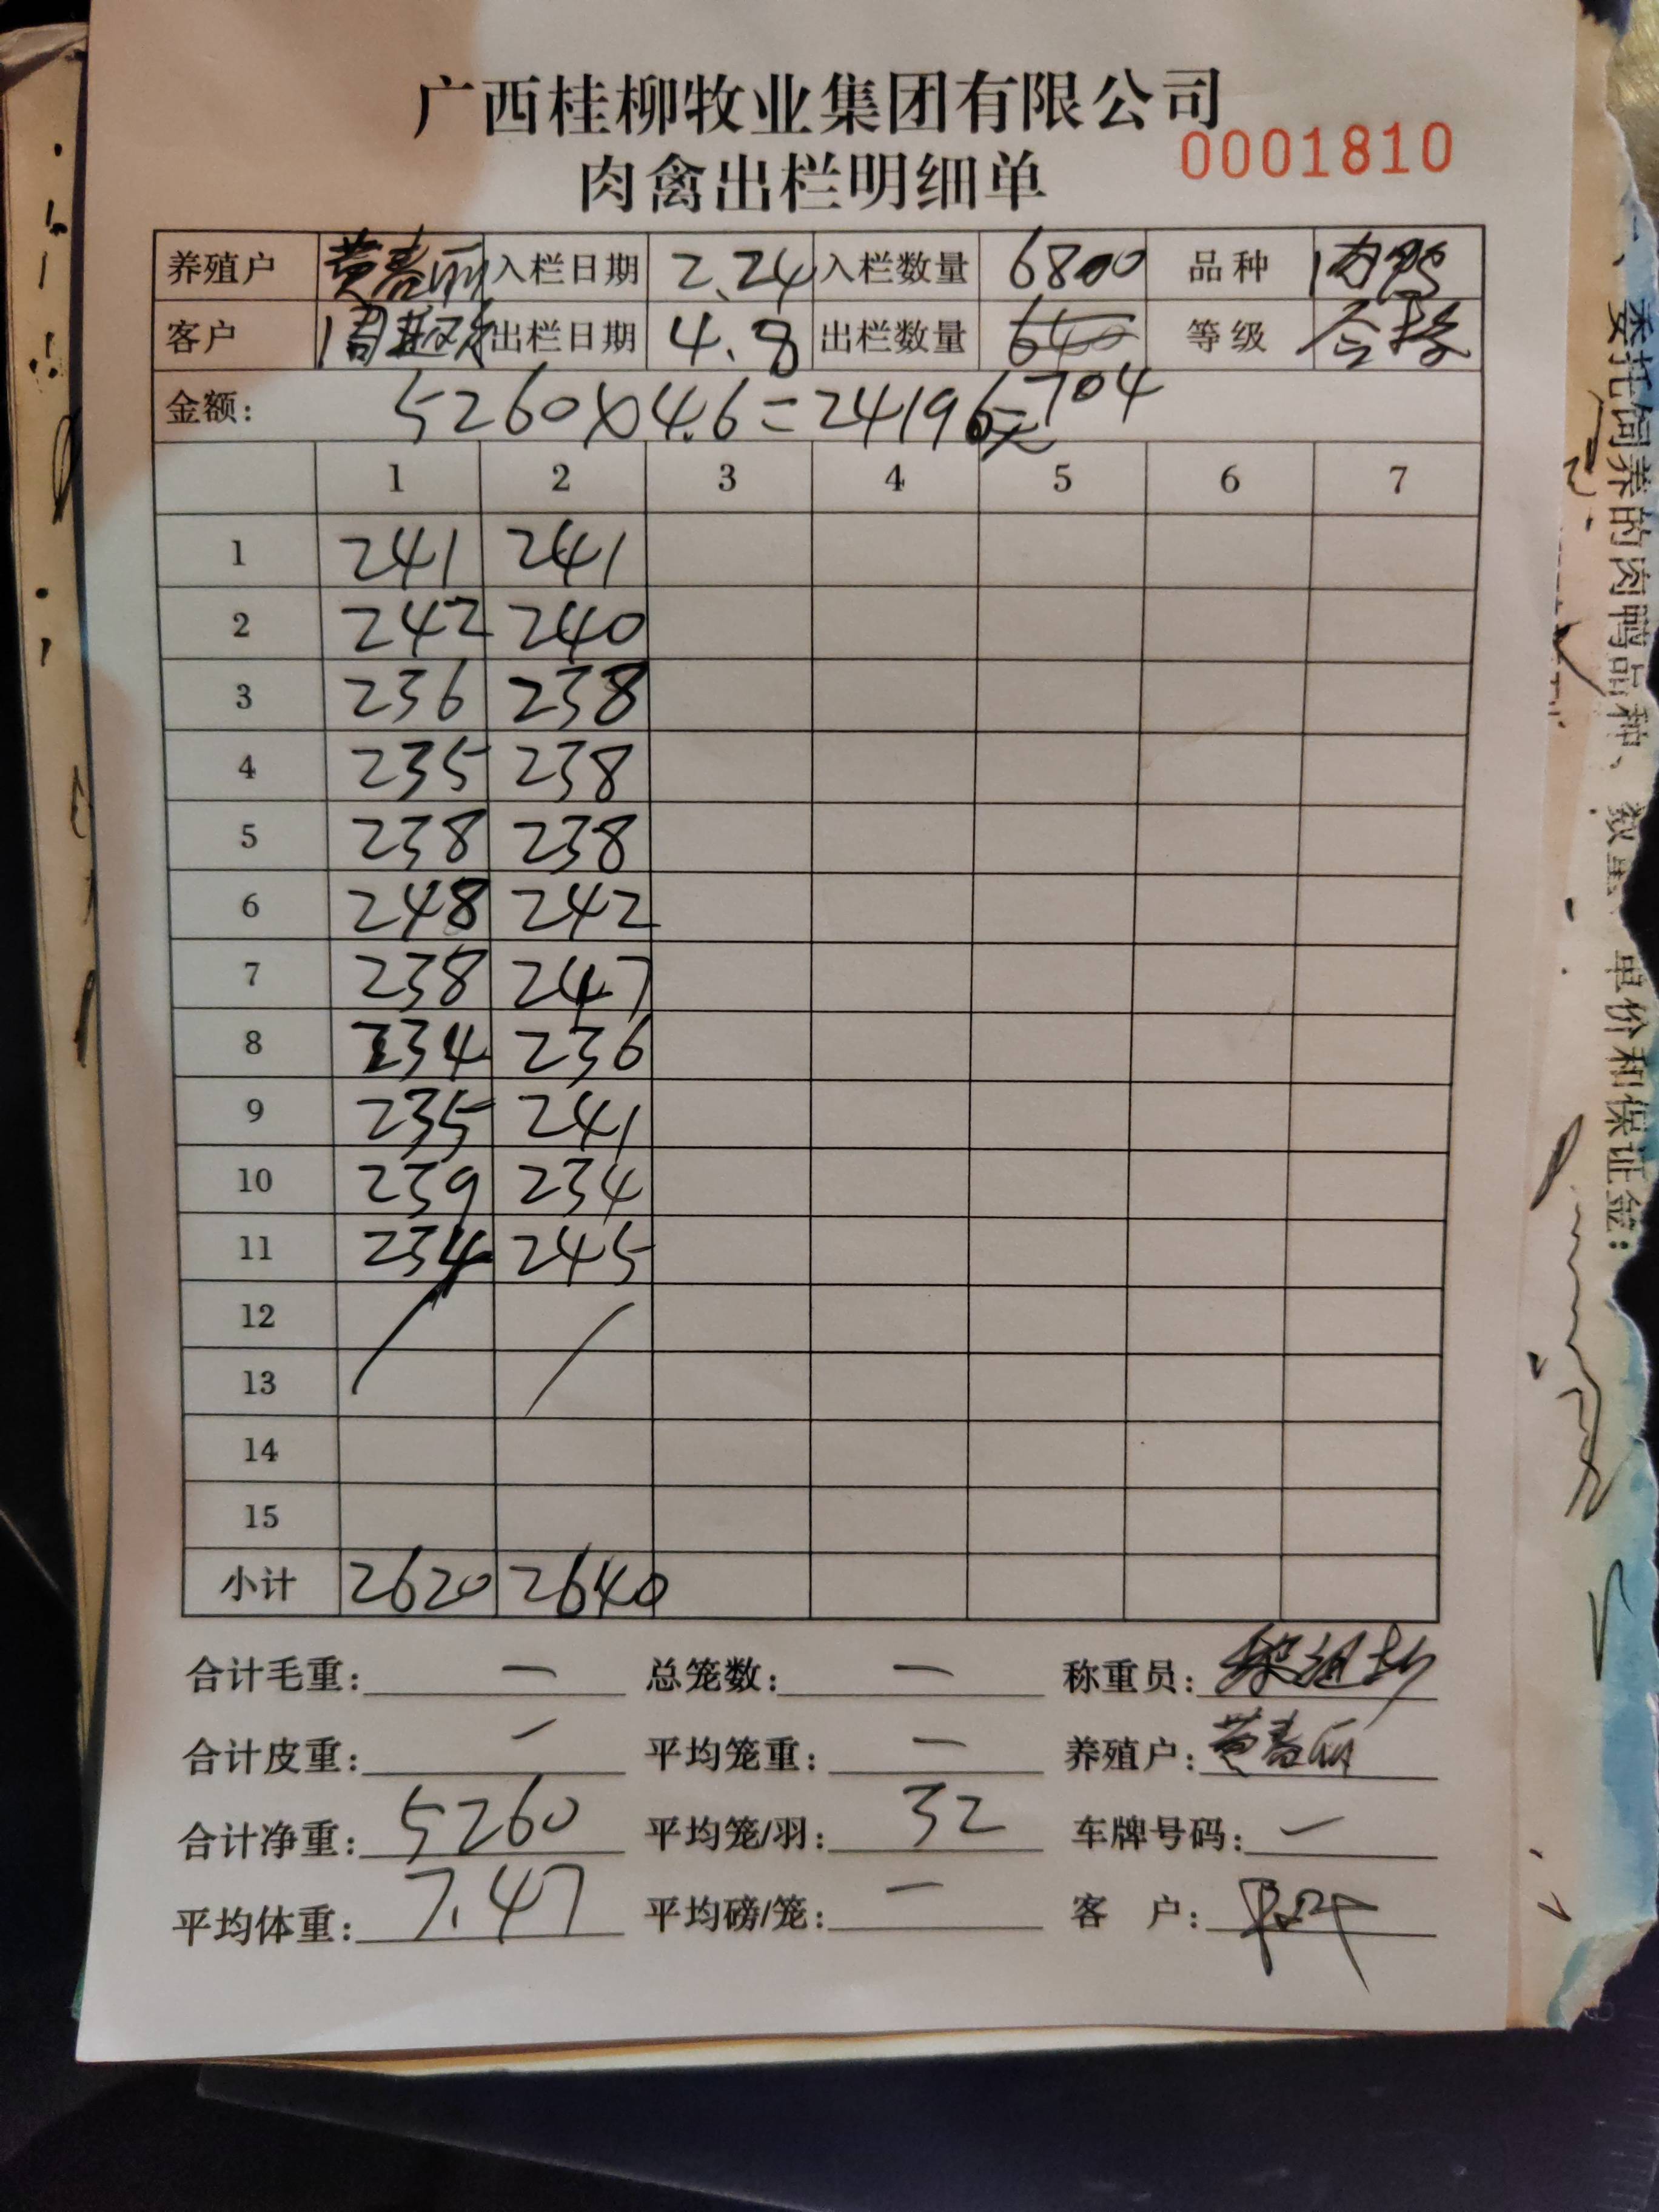 广西桂柳牧业集团有限公司
肉禽出栏明细单 0001810
养殖户 黄春丽 入栏日期 2.24 入栏数量 6800 品种 肉鸭
客户 出栏日期 4.8 出栏数量 640 等级 合格
金额: 5260×4.6=24196元 704
1 2 3 4 5 6 7
1 241 241
2 242 240
3 236 238
4 235 238
5 238 238
6 248 242
7 238 247
8 234 236
9 235 241
10 239 234
11 234 245
12
13
14
15
小计 2620 2640
合计毛重: — 总笼数: — 称重员:
合计皮重: — 平均笼重: — 养殖户: 黄春丽
合计净重: 5260 平均笼/羽: 32 车牌号码: —
平均体重: 7.47 平均磅/笼: — 客 户:
委托饲养的肉鸭品种、数量、单价和保证金: